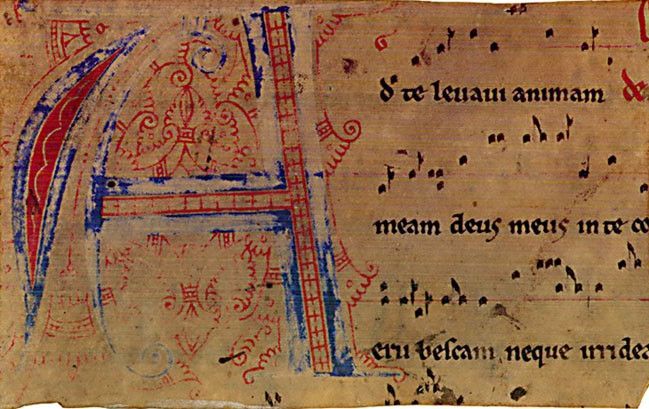 Ad te leuaui animam de
meam deus meus in te co
eru beſcam neque irridea